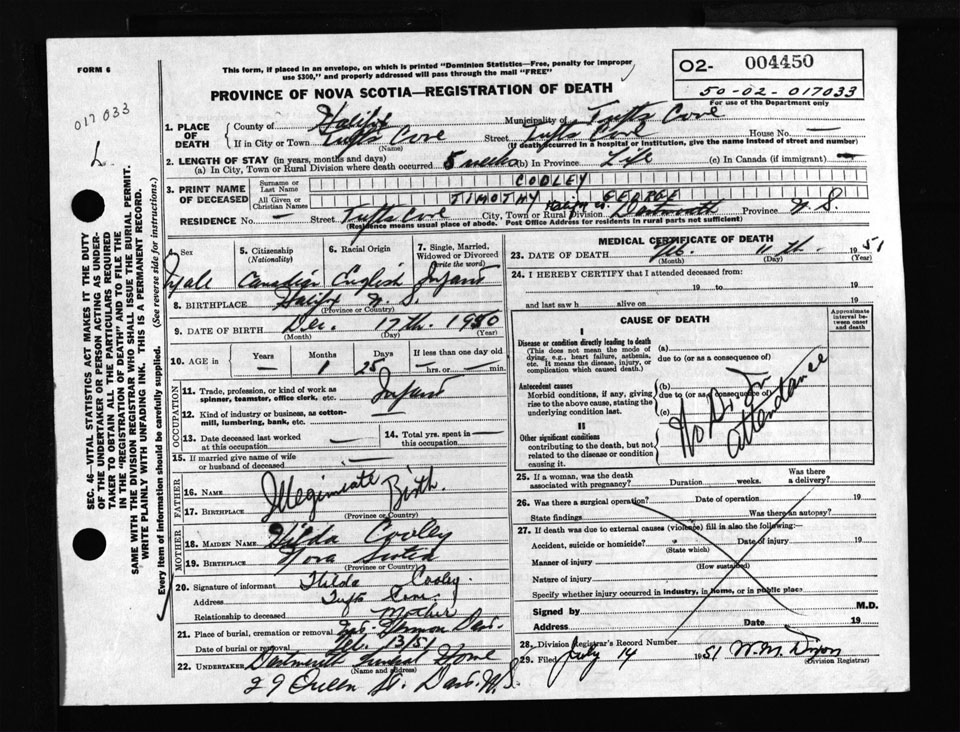 FORM 6
This form, if placed in an envelope, on which is printed "Dominion Statistics—Free, penalty for improper
use $300," and properly addressed will pass through the mail "FREE"
O2- 004450
50-02-017033
For use of the Department only
017033
L.
PROVINCE OF NOVA SCOTIA—REGISTRATION OF DEATH
1. PLACE OF DEATH { County of Halifax Municipality of Tufts Cove
If in City or Town Tufts Cove Street Tufts Cove House No. —
(Name) (If death occurred in a hospital or Institution, give the name instead of street and number)
2. LENGTH OF STAY (in years, months and days)
(a) In City, Town or Rural Division where death occurred 5 weeks (b) In Province Life (c) In Canada (if immigrant) —
3. PRINT NAME OF DECEASED { Surname or Last Name COOLEY
All Given or Christian Names TIMOTHY GEORGE
RESIDENCE No. — Street Tufts Cove City, Town or Rural Division Halifax Co. Dartmouth Province N.S.
(Residence means usual place of abode. Post Office Address for residents in rural parts not sufficient)
SEC. 46—VITAL STATISTICS ACT MAKES IT THE DUTY
OF THE UNDERTAKER OR PERSON ACTING AS UNDER-
TAKER TO OBTAIN ALL THE PARTICULARS REQUIRED
IN THE "REGISTRATION OF DEATH" AND TO FILE THE
SAME WITH THE DIVISION REGISTRAR WHO SHALL ISSUE THE BURIAL PERMIT.
WRITE PLAINLY WITH UNFADING INK. THIS IS A PERMANENT RECORD.
Every item of information should be carefully supplied. (See reverse side for instructions.)
Sex 5. Citizenship (Nationality) 6. Racial Origin 7. Single, Married, Widowed or Divorced (write the word)
Male Canadian English Infant
8. BIRTHPLACE Halifax N.S.
(Province or Country)
9. DATE OF BIRTH Dec. 17th. 1950
(Month) (Day) (Year)
10. AGE in { Years — Months 1 Days 25 If less than one day old — hrs. or — min.
OCCUPATION
11. Trade, profession, or kind of work as spinner, teamster, office clerk, etc. Infant
12. Kind of industry or business, as cotton-mill, lumbering, bank, etc. —
13. Date deceased last worked at this occupation — 14. Total yrs. spent in this occupation —
15. If married give name of wife or husband of deceased —
FATHER
16. NAME Illegimiate Birth.
17. BIRTHPLACE
(Province or Country)
MOTHER
18. MAIDEN NAME Hilda Cooley
19. BIRTHPLACE Nova Scotia
(Province or Country)
20. Signature of informant Hilda Cooley.
Address Tufts Cove
Relationship to deceased Mother
21. Place of burial, cremation or removal Mt. Hermon Dart.
Date of burial or removal Feb. 13/51
22. UNDERTAKER Dartmouth Funeral Home
(Name and address)
29 Queen St. Dart. N.S.
MEDICAL CERTIFICATE OF DEATH
23. DATE OF DEATH Feb. 11th. 1951
(Month) (Day) (Year)
24. I HEREBY CERTIFY that I attended deceased from:
19 to 19
and last saw h alive on 19
CAUSE OF DEATH
Approximate interval between onset and death
I
Disease or condition directly leading to death (a)
(This does not mean the mode of dying, e.g., heart failure, asthenia, etc. It means the disease, injury, or complication which caused death.) due to (or as a consequence of)
Antecedent causes (b)
Morbid conditions, if any, giving rise to the above cause, stating the underlying condition last. due to (or as a consequence of)
(c)
No Dr In attendance
II
Other significant conditions
contributing to the death, but not related to the disease or condition causing it.
25. If a woman, was the death associated with pregnancy? Duration weeks. Was there a delivery?
26. Was there a surgical operation? Date of operation 19
State findings Was there an autopsy?
27. If death was due to external causes (violence) fill in also the following:
Accident, suicide or homicide? Date of injury 19
(State which)
Manner of injury
(How sustained)
Nature of injury
Specify whether injury occurred in industry, in home, or in public place
Signed by M.D.
Address Date 19
28. Division Registrar's Record Number
29. Filed July 14 1951 W.M. Dixon
(Division Registrar)